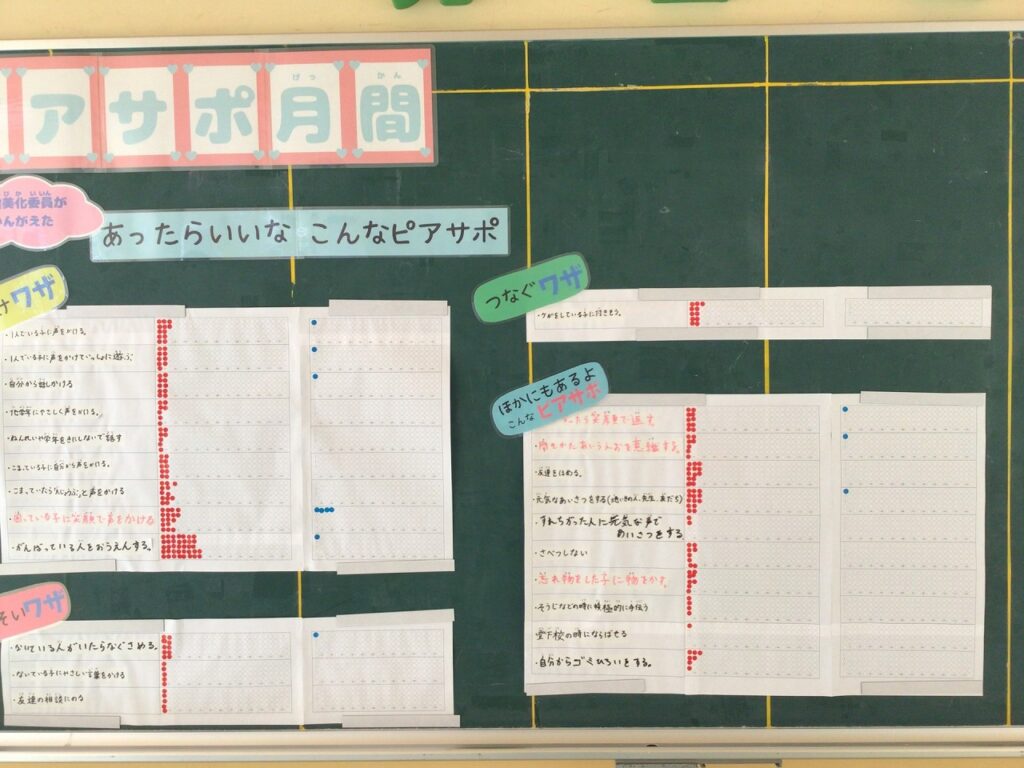 アサポ月間
げっ かん
びかいいん
美化委員が
んがえた
あったらいいな こんなピアサポ
ワザ
・1人でいる子に声をかける。
・1人でいる子に声をかけていっしょに遊ぶ
・自分から話しかける
・他学年にやさしく声をかける。
・ねんれいや学年をきにしないで話す
・こまっている子に自分から声をかける。
・こまっていたら「だいじょうぶ」と声をかける
・困っている子に笑顔で声をかける
・がんばっている人をおうえんする。
そいワザ
・ないている人がいたらなぐさめる。
・ないている子にやさしい言葉をかける
・友達の相談にのる
つなぐワザ
・ケガをしている子に付きそう。
ほかにもあるよ
こんなピアサポ
ったら笑顔で返す
・友達をほめる。
・元気なあいさつをする(地いきの人、先生、友だち)
・すれちがった人に元気な声で
あいさつをする
・さべつしない
・忘れ物をした子に物をかす。
・そうじなどの時に積極的に手伝う
登下校の時にならばせる
・自分からゴミひろいをする。